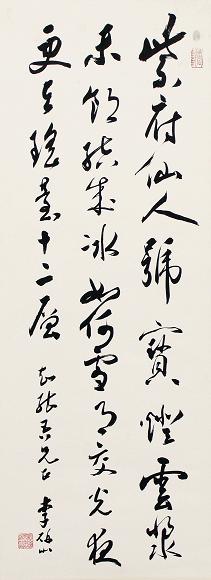 紫府仙人號寶燈雲漿
未飲結成冰如何雪月交光夜
更在瑤臺十二層
吾兄正 李研山